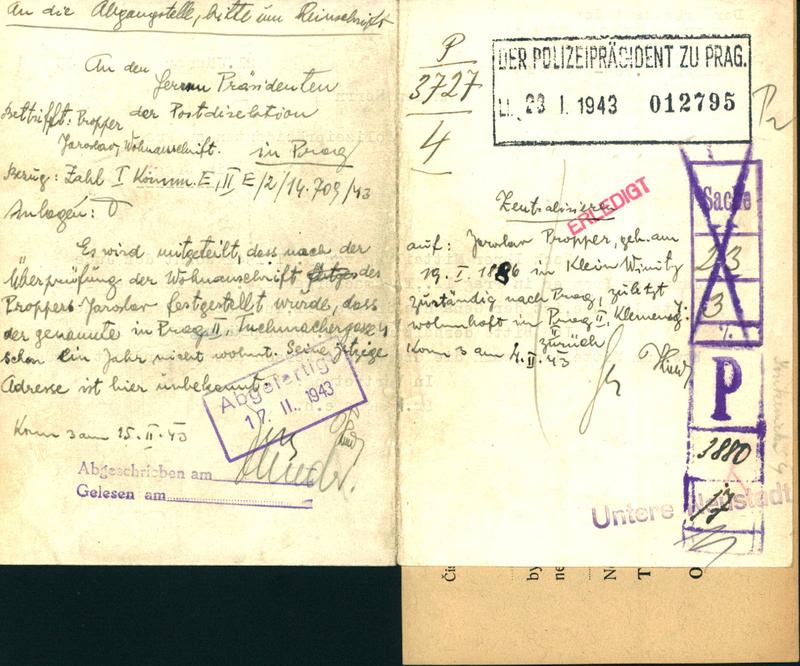 An die Abgangstelle, bitte um Reinschrift
An den
Herrn Präsidenten
der Postdirektion
in Prag
Betrifft: Propper
Jaroslav, Wohnanschrift.
Bezug: Zahl I Komm. E, II E/2/14.709/43
Anlagen:
Es wird mitgeteilt, dass nach der
Überprüfung der Wohnanschrift des
Proppers Jaroslav festgestellt wurde, dass
der genannte in Prag II, Tuchmachergasse 4
schon ein Jahr nicht wohnt. Seine jetzige
Adresse ist hier unbekannt.
Abgefertigt
17. II. 1943
Komm 3 am 15. II. 43
Abgeschrieben am
Gelesen am
P
3727
4
DER POLIZEIPRÄSIDENT ZU PRAG.
23 I. 1943 012795
Zentralisieren
ERLEDIGT
auf: Jaroslav Propper, geb. am
19. I. 1886 in Klein Winitz
zuständig nach Prag, zuletzt
wohnhaft in Prag II, Klemensg.
zurück
Komm 3 am 4. II. 43
Sache
23
3
P
3880
17
Untere Neustadt
by
T
O